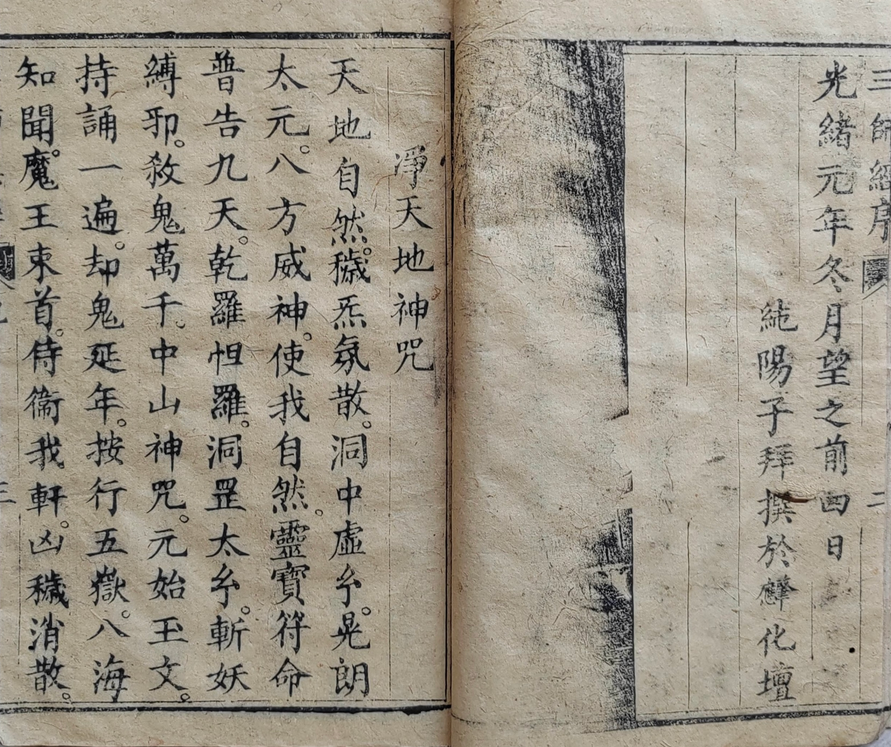 三師經序
光緒元年冬月望之前四日
純陽子拜撰於蜂化壇
二
淨天地神咒
天地自然。穢炁氛散。洞中虛玄。晃朗
太元。八方威神。使我自然。靈寶符命
普告九天。乾羅怛羅。洞罡太玄。斬妖
縛邪。殺鬼萬千。中山神咒。元始玉文。
持誦一遍。却鬼延年。按行五嶽。八海
知聞。魔王束首。侍衛我軒。凶穢消散。
三